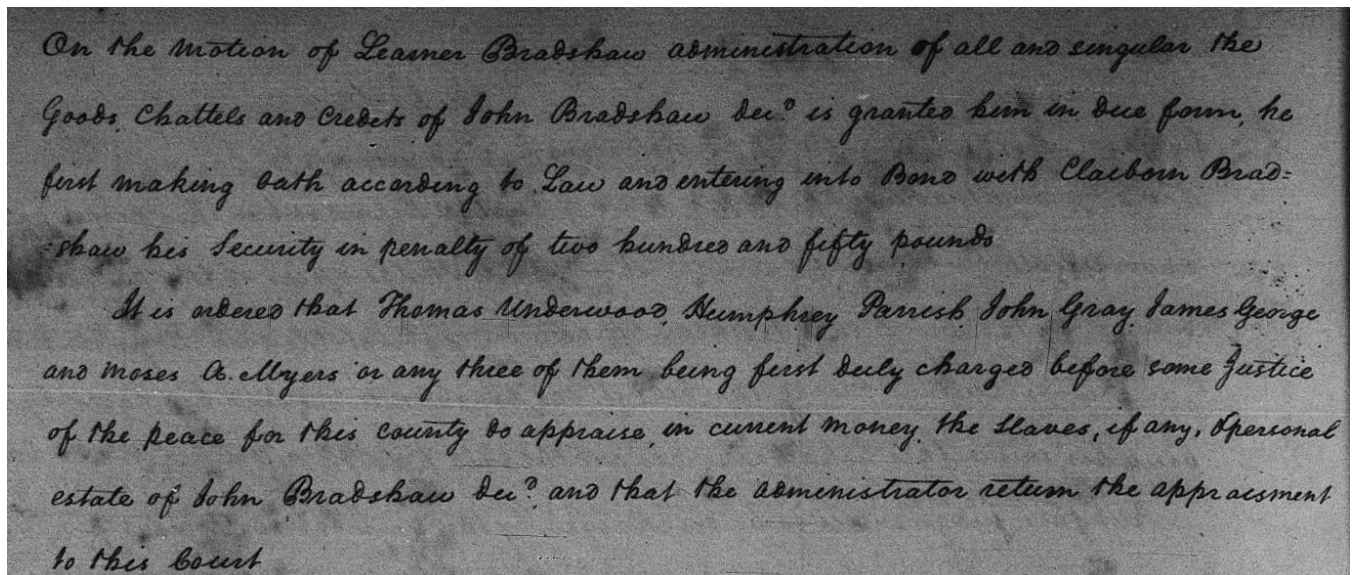 On the motion of Learner Bradshaw administration of all and singular the
Goods, Chattels and Credits of John Bradshaw decd is granted him in due form, he
first making Oath according to Law and entering into Bond with Claiborn Brad=
=shaw his Security in penalty of two hundred and fifty pounds
It is ordered that Thomas Underwood, Humphrey Parrish, John Gray, James George
and Moses A. Myers or any three of them being first duly charged before some Justice
of the peace for this county do appraise, in current money, the slaves, if any, & personal
estate of John Bradshaw decd and that the administrator return the appraisment
to this Court